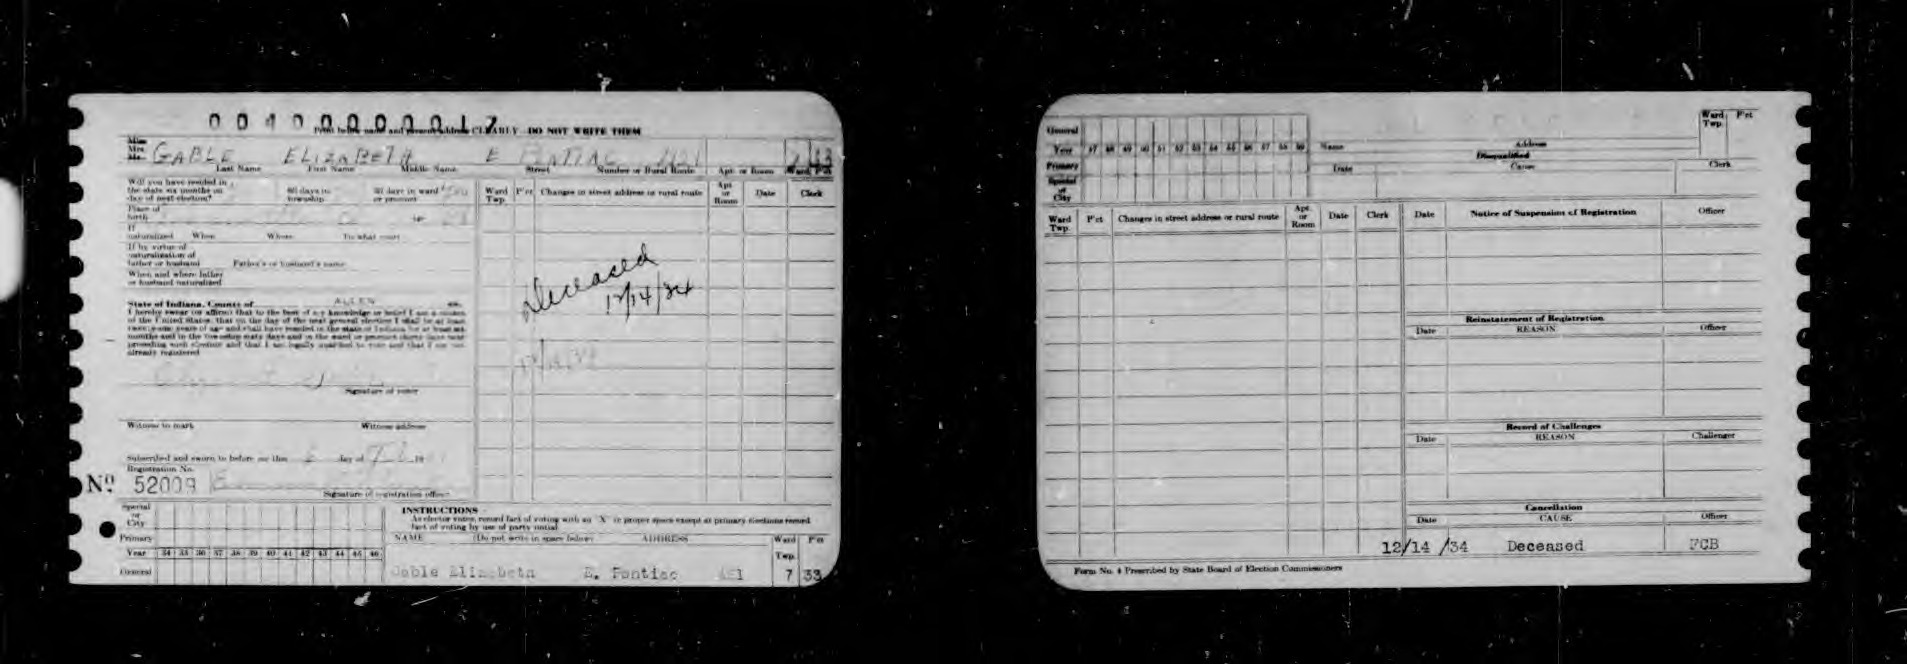 0040000017
Print below name and present address CLEARLY—DO NOT WRITE THEM
Miss
Mrs.
Mr. GABLE ELIZABETH E PONTIAC 7
Last Name First Name Middle Name Street Number or Rural Route Apt. or Room Ward P'ct
Will you have resided in
the state six months on
day of next election? 60 days in
township 30 days in ward
or precinct
Place of
birth
If
naturalized When Where To what court
If by virtue of
naturalization of
father or husband Father's or husband's name
When and where father
or husband naturalized
State of Indiana, County of ALLEN ss.
I hereby swear (or affirm) that to the best of my knowledge or belief I am a citizen
of the United States, that on the day of the next general election I shall be at least
twenty-one years of age and shall have resided in the state of Indiana for at least six
months and in the township sixty days and in the ward or precinct thirty days next
preceding such election and that I am legally qualified to vote and that I am not
already registered
Signature of voter
Witness to mark Witness address
Subscribed and sworn to before me this day of 19
Registration No.
Nº 52009
Signature of registration officer
Ward
Twp. P'ct Changes in street address or rural route Apt.
or
Room Date Clerk
Deceased
12/14/34
Special
or
City
Primary
Year 34 35 36 37 38 39 40 41 42 43 44 45 46
General
INSTRUCTIONS
As elector votes, record fact of voting with an "X" in proper space except at primary elections record
fact of voting by use of party initial
NAME (Do not write in space below) ADDRESS Ward
Twp. P'ct
Gable Elizabeth E. Pontiac 7 33
General
Year 47 48 49 50 51 52 53 54 55 56 57 58 59
Primary
Special
or
City
Name Address Ward
Twp. P'ct
Disqualified
Date Cause Clerk
Ward
Twp. P'ct Changes in street address or rural route Apt.
or
Room Date Clerk
Date Notice of Suspension of Registration Officer
Reinstatement of Registration
Date REASON Officer
Record of Challenges
Date REASON Challenger
Cancellation
Date CAUSE Officer
12/14/34 Deceased FCB
Form No. 4 Prescribed by State Board of Election Commissioners